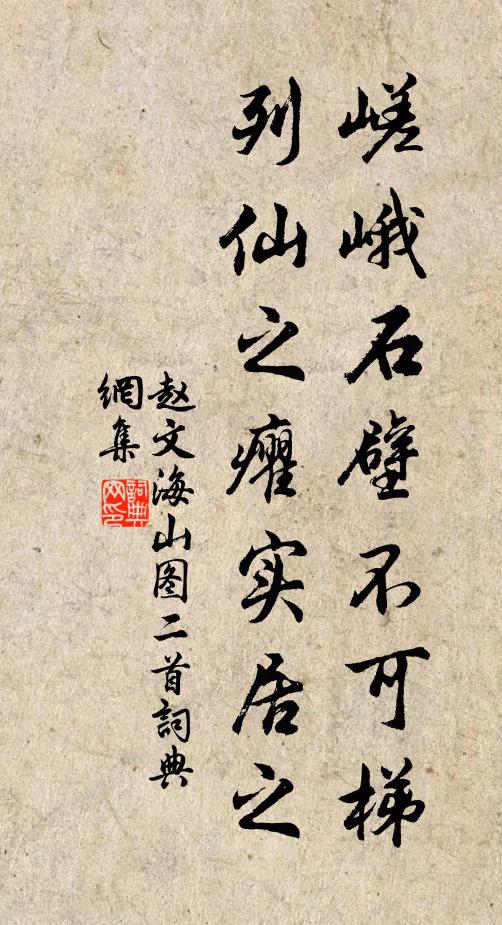 嵯峨石壁不可梯
列仙之癯实居之
赵文海山图二首词典
網集
詞典
网印